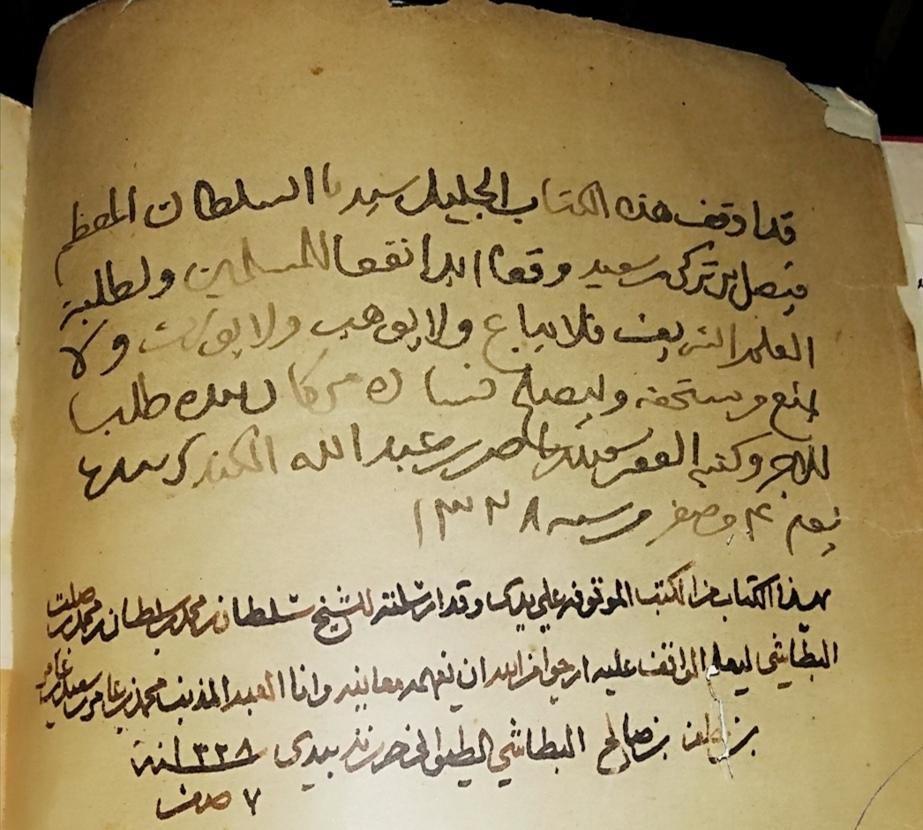 قد اوقف هذه الكتاب الجليل سيدنا السلطان المعظم
فيصل بن تركي سعيد وقفا ابدا نفعا للمسلمين ولطلبة
العلم الشريف فلا يباع ولا يوهب ولا يورث ولا
يمنع من مستحقه وليصلح فساده من كان بيده طلبا
للاجر وكتبه الفقير سعيد بن ناصر بن عبدالله الكندي بيده
يوم ٤ من صفر من سنه ١٣٢٨
هذا الكتاب من الكتب الموقوفه علي يدي وقد ارسلته للشيخ سلطان بن محمد بن سلطان بن محمد بن صلت
البطاشي ليعلم الواقف عليه ارجو من الله ان يفهمه معانيه وانا العبد المذنب محمد بن عامر سعيد بن عامر
بن خلف بن صالح البطاشي بيدي ٣٢٨ سنة
٧ صفر